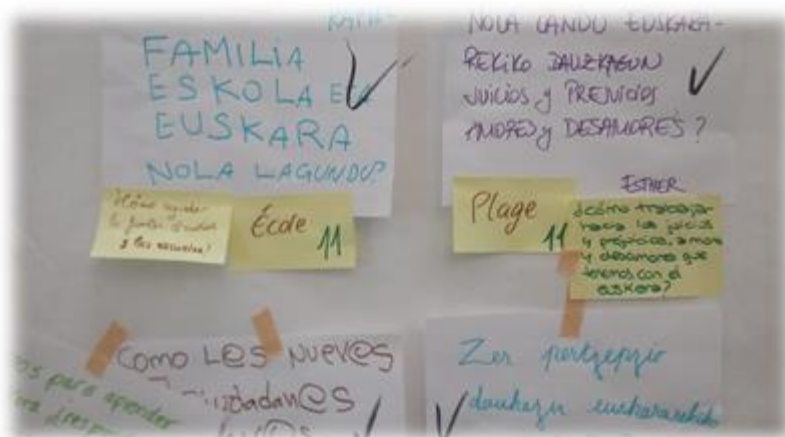 FAMILIA
ESKOLA
EUSKARA
NOLA LAGUNDU?
¿Cómo ayudar
a las
y las escuelas?
École
11
NOLA LANDU EUSKARA-
REKIKO DAUZKAGUN
JUICIOS y PREJUICIOS
AMORES y DESAMORES?
ESTHER
Plage
11
¿cómo trabajar
hacia los juicios
y prejuicios, amores
y desamores que
tenemos con el
euskera?
para aprender
COMO L@S NUEV@S
Zer pertzepzio
daukazu euskararekiko